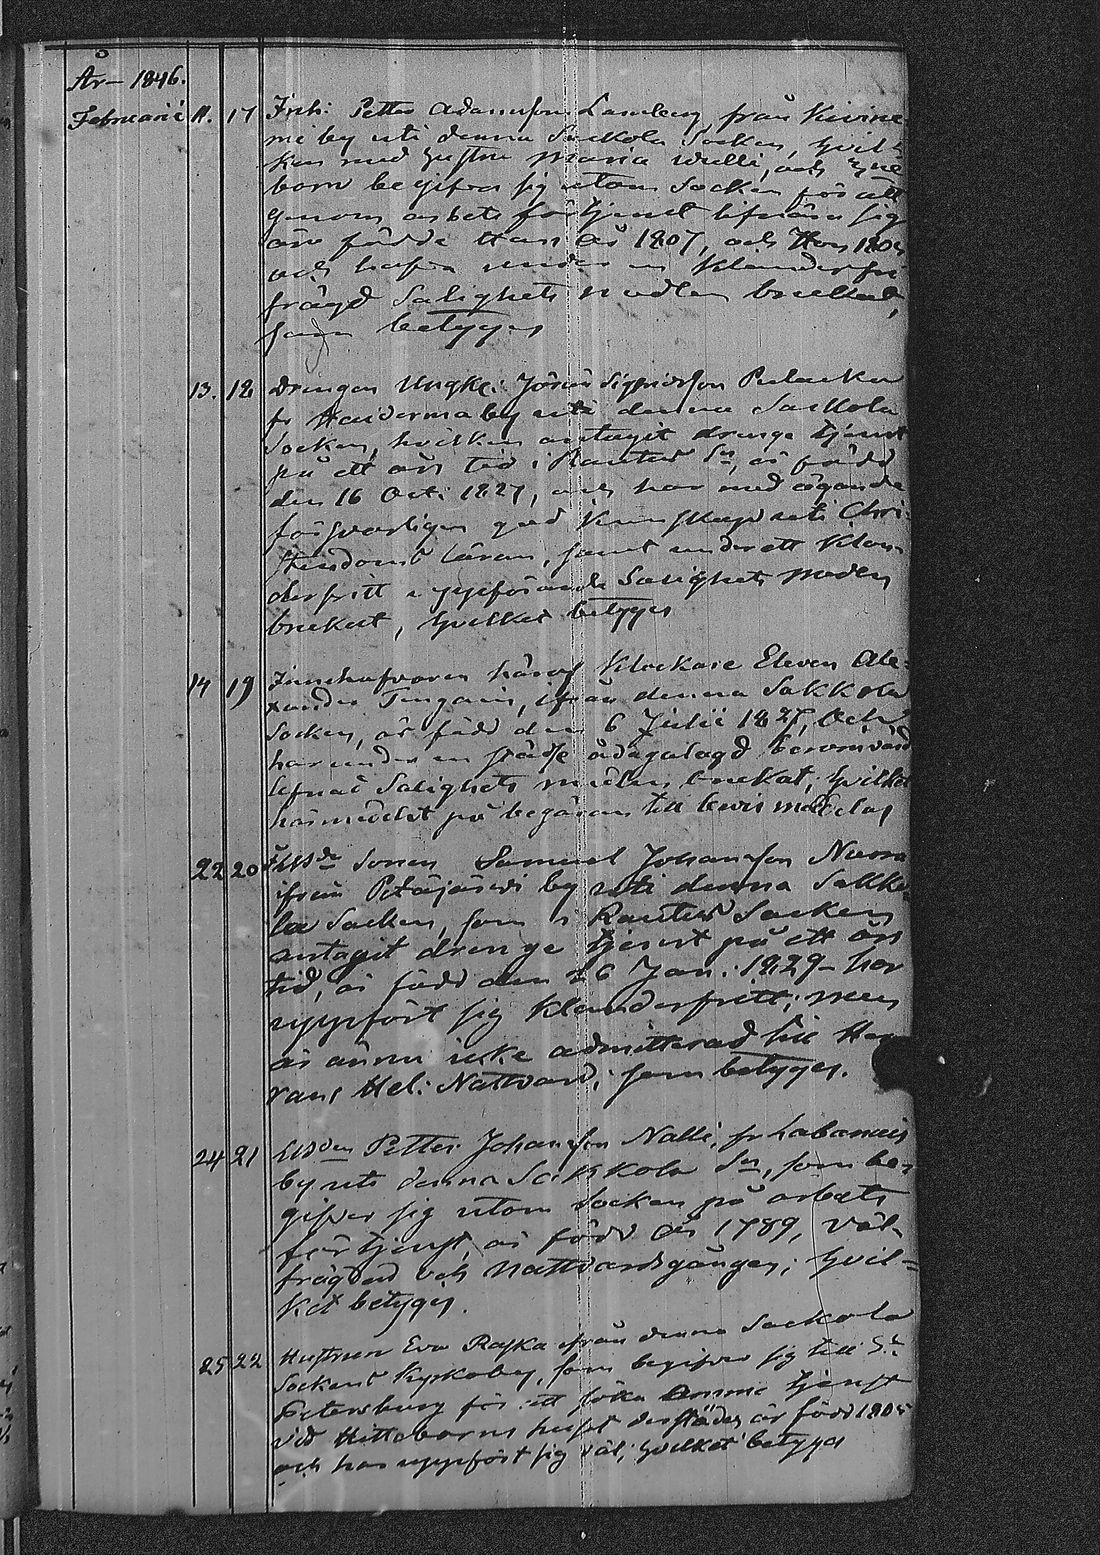 År 1846.
Februarii 11. 17 Inh: Petter Adamsson Lamberg, från Kivine
mi by uti denna Sackola Socken, hvil
ken med hustru Maria Wulli, och
barn begifva sig utom Socken för att
genom arbets förtjenst lifnära sig
äro födde Han år 1807, och Hon 180
och hafva under en klanderfri
frägd Salighets medlen brukat,
som betyges
13. 18 Drengen Ynglⁱ: Jöran Sigfridsson Pulacka
fr Haidermaby uti denna Sackola
Socken, hvilken antagit drenge tjenst
på ett års tid i Rautus Sn, är född
den 16 Oct: 1827, och har med ägande
försvarligen god kunskap uti Chri
stendoms läran, samt under ett klan
derfritt uppförande Salighets medlen
brukat, hvilket betyges
14 19 Innehafvaren häraf Klockare Eleven Ale-
xander Tengain, ifrån denna Sakkola
Socken, är född den 6 Julii 1827, Och
har under en städse ådagalagd berömvärd
lefnad Salighets medlen brukat, hvilket
härmedelst på begäran till bewis meddelas
22 20 Sonen Samuel Johansson Nuora
ifrån Petäjärwi by uti denna Sakko
la Socken, som i Rautus Socken
antagit drenge tjenst på ett års
tid, är född den 26 Jan: 1829 - har
uppfört sig klanderfritt; men
är ännu icke admitterad till Her
rans Hel: Nattvard; som betyges.
24 21 Petter Johansson Nalli, fr Labanais
by uti denna Sackkola Sn, som be
gifver sig utom Socken på arbets
förtjenst, är född år 1789, väl-
frägdad och Nattvardsgången; hvil=
ket betyges.
25 22 Hustrun Eva Rajka ifrån denna Sackola
Sockens Kyrkoby, som begifver sig till St.
Petersburg för att söka Amme tjenst
vid Hittebarns huset derstädes är född 1805
och har uppfört sig väl; hvilket betyges